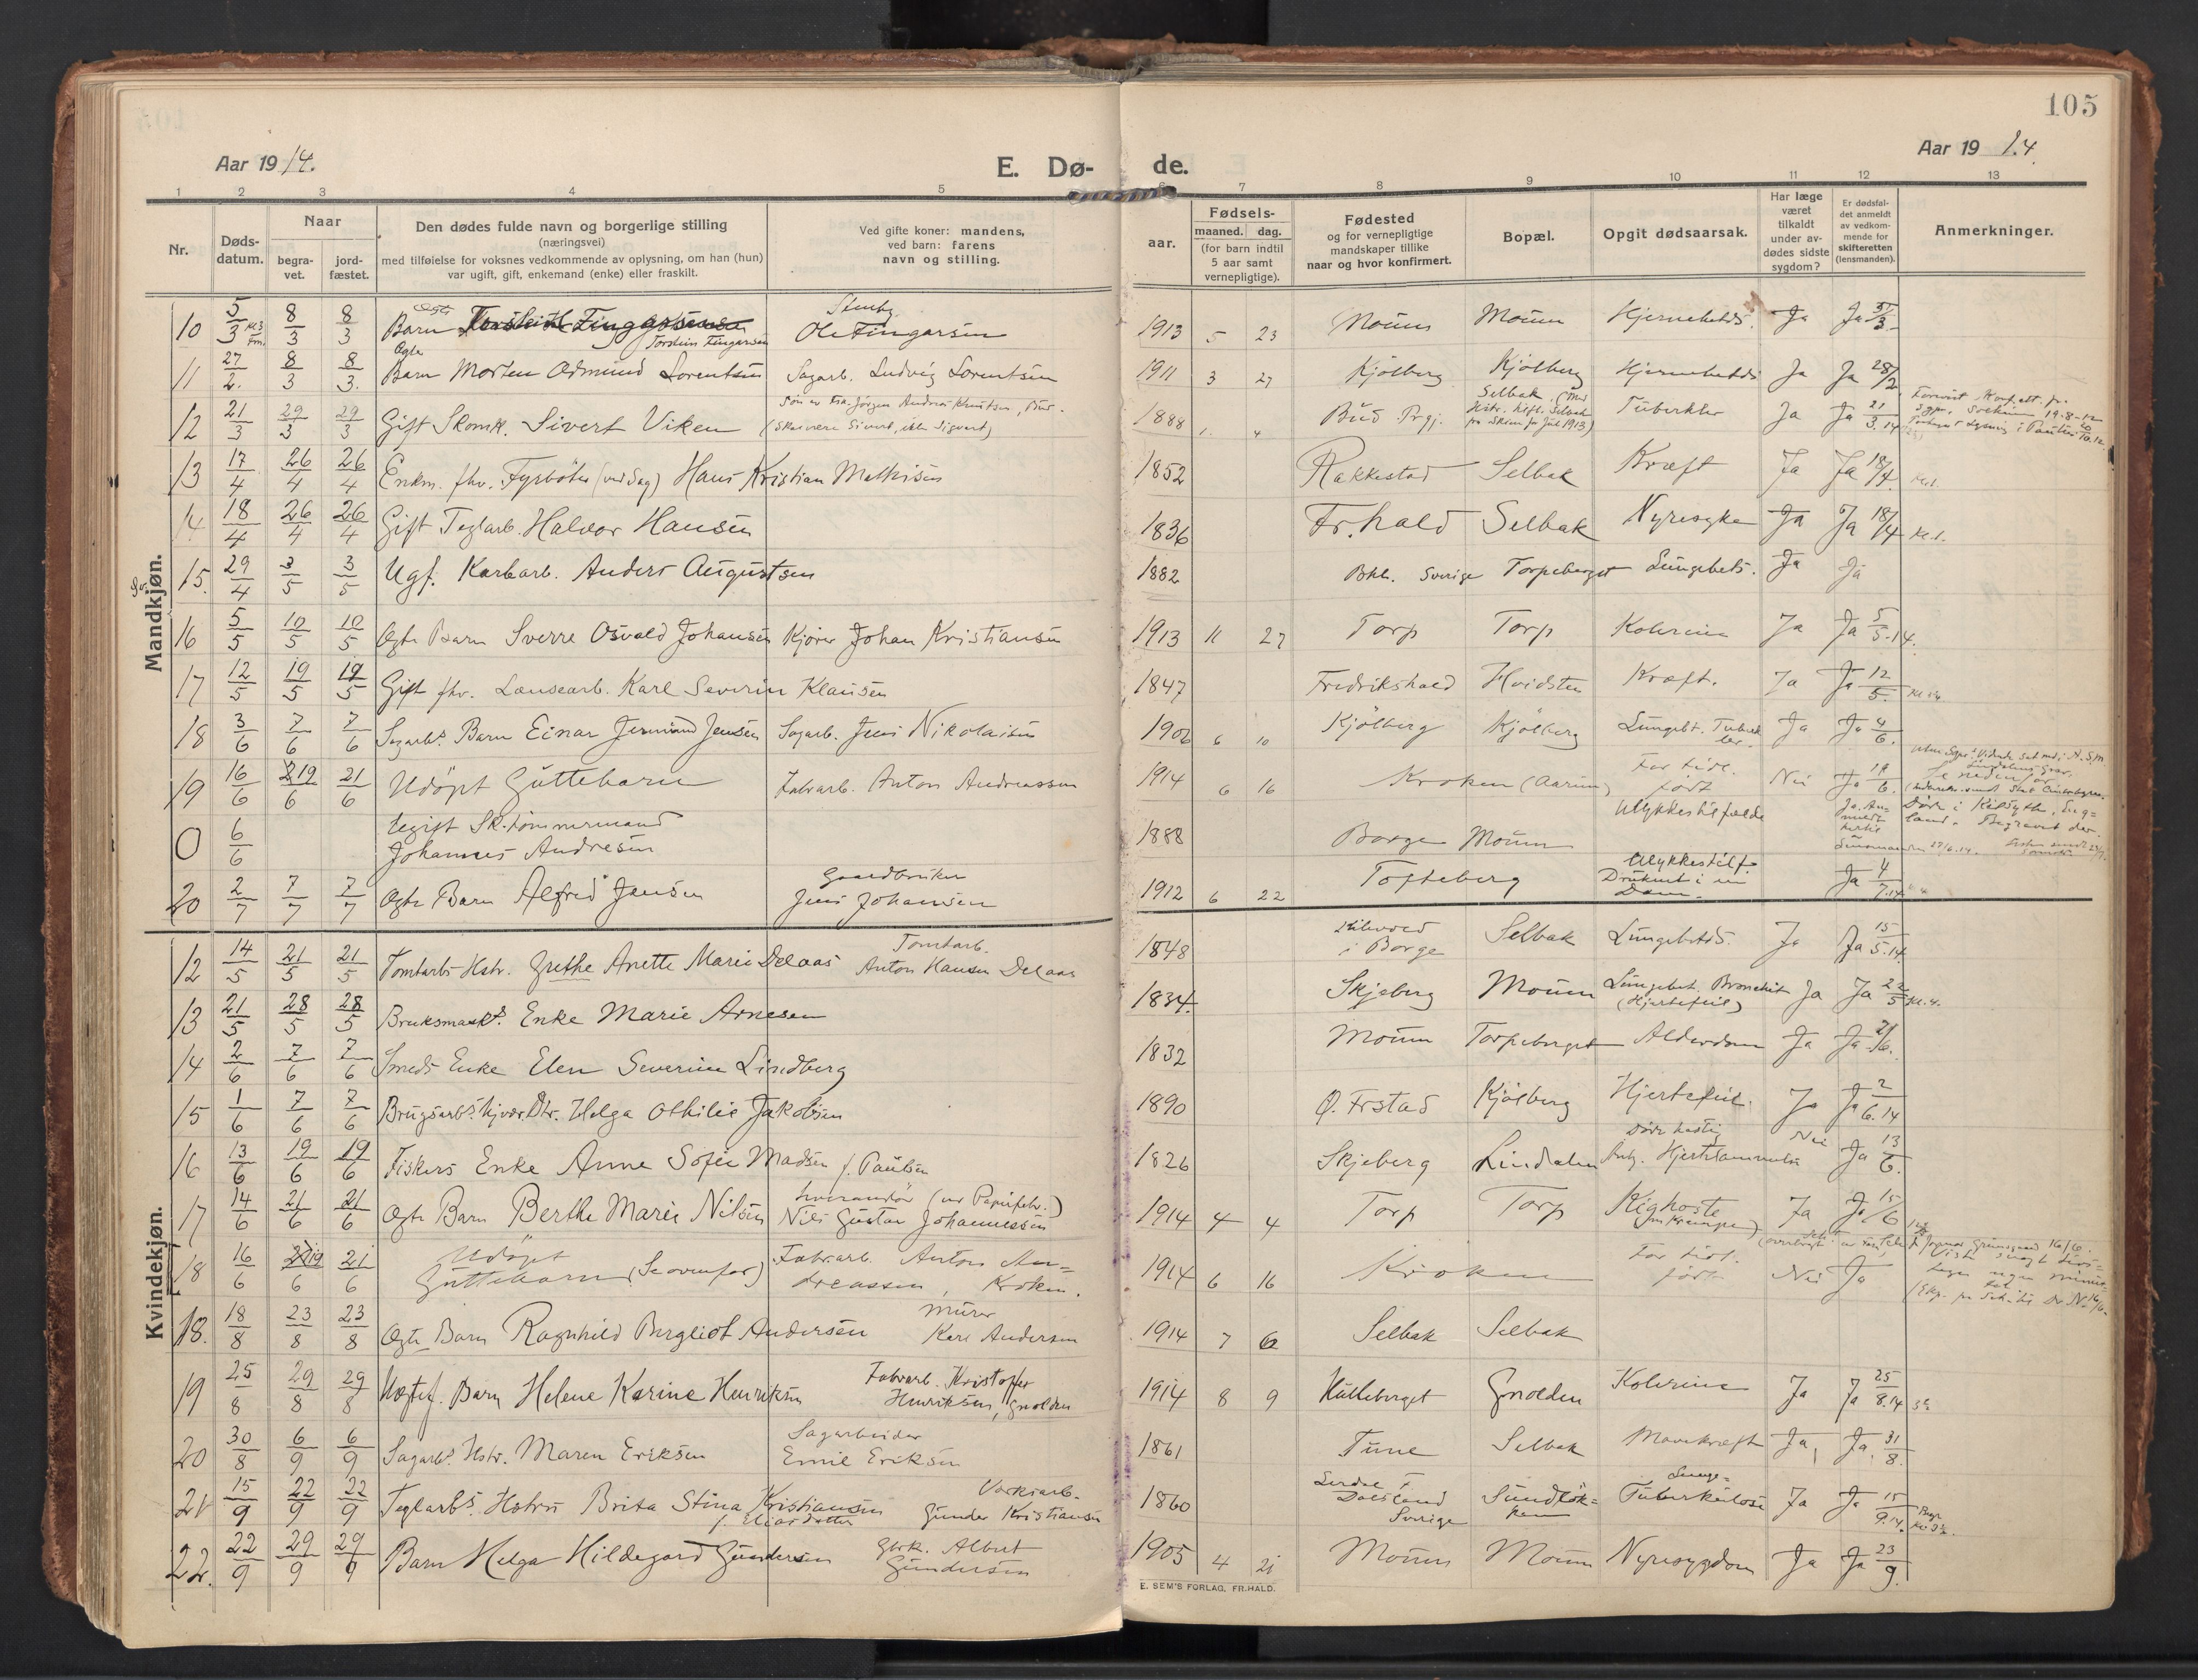 105
Aar 19 14.
E. Dø-
de.
Aar 19 14.
1 2 3 4 5 6 7 8 9 10 11 12 13
Nr.
Døds-
datum.
Naar
begra-
vet.
jord-
fæstet.
Den dødes fulde navn og borgerlige stilling
(næringsvei)
med tilføielse for voksnes vedkommende av oplysning, om han (hun)
var ugift, gift, enkemand (enke) eller fraskilt.
Ved gifte koner: mandens,
ved barn: farens
navn og stilling.
aar.
Fødsels-
maaned. dag.
(for barn indtil
5 aar samt
vernepligtige).
Fødested
og for vernepligtige
mandskaper tillike
naar og hvor konfirmert.
Bopæl.
Opgit dødsaarsak.
Har læge
været
tilkaldt
under av-
dødes sidste
sygdom?
Er dødsfal-
det anmeldt
av vedkom-
mende for
skifteretten
(lensmanden).
Anmerkninger.
Mandkjøn.
10 5/3 8/3 8/3 Barn Torstein Fingarsen Stenhg. Ole Fingarsen 1913 5 23 Moum Moum Hjernebetds. Ja Ja 5/3
11 27/2. 8/3 8/3. Ægte Barn Morten Odmund Lorentsen Sagarb. Ludvig Lorentsen 1911 3 27 Kjölberg Kjölberg Hjernebetds Ja Ja 28/2
12 21/3 29/3 29/3 Gift Skomk. Sivert Viken (Skal være Sivert, ikke Sigvart) 1888 1. 4 Bud Prgj. Selbak Tuberkler Ja Ja 21/3.14
13 17/4 26/4 26/4 Enkm. fhv. Fyrböter (ved Sag) Hans Kristian Mathisen 1852 Rakkestad Selbak Kræft Ja Ja 18/4.
14 18/4 26/4 26/4 Gift Teglarb. Halvor Hansen 1836 Fr.hald Selbak Nyresyke Ja Ja 18/4 Kl. 1.
15. 29/4 3/5 3/5 Ugf. Karbarb. Anders Augustsen 1882 Bhl. Sverige Torpeberget Lungebets. Ja Ja
16 5/5 10/5 10/5 Ægte Barn Sverre Osvald Johansen Kjörer Johan Kristiansen 1913 11 27 Torp Torp Kolerine Ja Ja 5/5-14.
17 12/5 19/5 19/5 Gift fhv. Lænsearb. Karl Severin Klausen 1847 Fredrikshald Hvidsten Kræft. Ja Ja 12/5.
18 3/6 7/6 7/6 Sagarbs. Barn Einar Jermund Jensen Sagarb. Jens Nikolaisen 1906 6 10 Kjölberg Kjölberg Lungebt. Ja Ja 4/6.
19 16/6 19/6 21/6 Udöpt Guttebarn Fabrarb. Anton Andreassen 1914 6 16 Kroken (Aarum) For tidl. född Nei Ja 19/6.
0 6/6 Ugift Sk.tömmermand
Johannes Andresen 1888 Borge Moum Ulykkestilfælde Döde i Kilsythe, Eng=
land. Begravet der.
20 2/7 7/7 7/7 Ægte Barn Alfred Jensen Gaardbruker Jens Johansen 1912 6 22 Tofteberg Ulykkestilf. Druknet i en Dam. Ja 4/7.14
Kvindekjøn.
12 14/5 21/5 21/5 Tomtarbs Hstr. Grethe Anette Marie Delaas Tomtarb. Anton Hansen Delaas 1848 i Borge Selbak Lungebetds. Ja Ja 15/5.14.
13 21/5 28/5 28/5 Enke Marie Arnesen 1834. Skjeberg Moum Lungebet. Bronchit (Hjertefeil) Ja Ja 22/5 Kl. 4.
14 2/6 7/6 7/6 Smeds Enke Elen Severine Lindberg 1832 Moum Torpeberget Alderdom Ja Ja 2/6.
15 1/6 7/6 7/6 Brugsarbs. hjvær. Dtr. Helga Othilie Jakobsen 1890 Ø. Frstad Kjölberg Hjertefeil. Ja Ja 2/6.14
16 13/6 19/6 19/6 Fiskers Enke Anne Sofie Madsen f. Paulsen 1826 Skjeberg Lindalen Döde hastig Hjertelammelse Nei Ja 13/6.
17 14/6 21/6 21/6 Ægte Barn Berthe Marie Nilsen (ved Papirfabr.) Nils Gustav Johannessen 1914 4 4 Torp Torp Kighoste (m Krampe) Ja Ja 15/6
18 16/6 19/6 21/6 Udöpt Guttebarn (Se ovenfor) Fabrarb. Anton An=
dreassen, Kroken. 1914 6 16 Kroken For tidl. född Nei Ja
18. 18/8 23/8 23/8 Ægte Barn Ragnhild Bergliot Andersen Murer Karl Andersen 1914 7 6 Selbak Selbak
19 25/8 29/8 29/8 Uægtef. Barn Helene Karine Henriksen Fabrarb. Kristoffer Henriksen, Gnolden 1914 8 9 Hulleberget Gnolden Kolerine Ja Ja 25/8.14
20 30/8 6/9 6/9 Sagarbs. Hstr. Maren Eriksen Sagarbeider Emil Eriksen 1861 Tune Selbak Mavekræft Ja, Ja, 31/8.
21 15/9 22/9 22/9 Teglarbs. Hstru Brita Stina Kristiansen f. Eliasdatter Verksarb. Gunder Kristiansen 1860 Dalsland Sverige Sundlök=
ken Lunge=
Tuberkulose Ja Ja 15/9.14.
22. 22/9 29/9 29/9 Barn Helga Hildegard Gundersen Gbrk. Albert Gundersen 1905 4 21 Moum Moum Nyresygdom Ja Ja 23/9.
E. SEM'S FORLAG, FR.HALD.